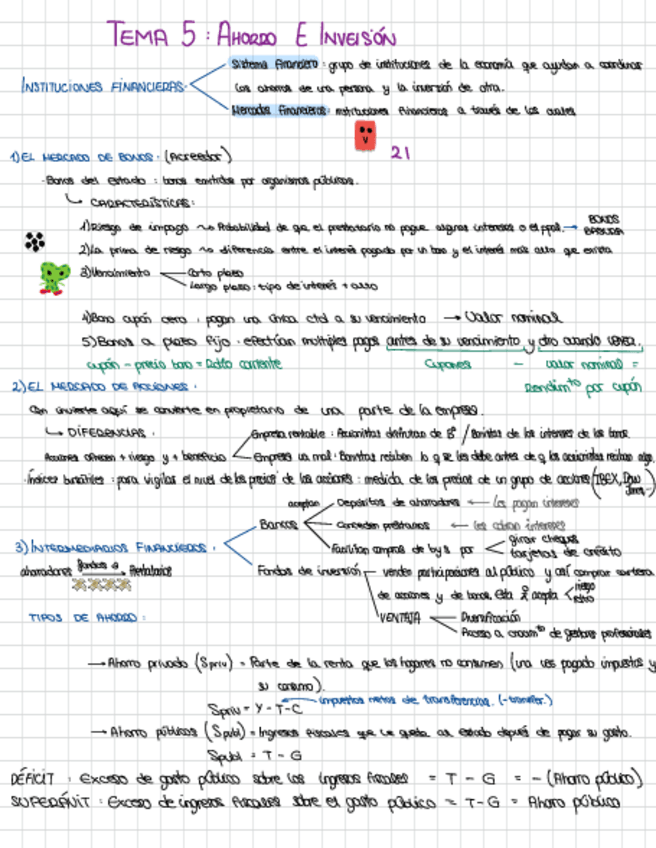 TEMA 5 : AHORRO E INVERSIÓN
Sistema financiero : grupo de instituciones de la economía que ayudan a coordinar
INSTITUCIONES FINANCIERAS. los ahorros de una persona y la inversión de otra.
Mercados financieros : instituciones financieras a través de las cuales
21
1) EL MERCADO DE BONOS. (Acreedor)
· Bonos del estado : bonos emitidos por organismos públicos.
↳ CARACTERÍSTICAS :
1) Riesgo de impago ~> Probabilidad de que el prestatario no pague algunos intereses o el ppal. → BONOS BASURA
2) La prima de riesgo ~> diferencia entre el interés pagado por un bono y el interés más alto que exista
3) Vencimiento Corto plazo
Largo plazo : tipo de interés + alto
4) Bono cupón cero : pagan una única ctd a su vencimiento → Valor nominal
5) Bonos a plazo fijo : efectúan múltiples pagos antes de su vencimiento y otro cuando vence.
cupón - precio bono = Rdto corriente Cupones - valor nominal =
Rendimto por cupón
2) EL MERCADO DE ACCIONES .
Qn invierte aquí se convierte en propietario de una parte de la empresa.
↳ DIFERENCIAS . Empresa rentable : Accionistas disfrutan de Bº / Bonistas de los intereses de los bonos.
Acciones ofrecen + riesgo y + beneficio Empresa va mal : Bonistas reciben lo q se les debe antes de q los accionistas reciban algo.
· Índices bursátiles : para vigilar el nivel de los precios de las acciones : medida de los precios de un grupo de acciones (IBEX, Dow Jones..)
aceptan Depósitos de ahorradores ← Les pagan intereses
Bancos Conceden préstamos ← les cobran intereses
3) INTERMEDIARIOS FINANCIEROS . Facilitan compras de b y s por girar cheques
tarjetas de crédito
ahorradores fondos a Prestatarios Fondos de inversión vender participaciones al público y así comprar cartera
de acciones y de bonos. Esta acepta riesgo
rdto
TIPOS DE AHORRO : VENTAJA Diversificación
Acceso a de gestores profesionales
→ Ahorro privado (Spriv) = Parte de la renta que los hogares no consumen (una vez pagado impuestos y
su consumo).
Spriv = Y - T - C ← impuestos netos de transferencias. (-transfer.)
→ Ahorro públicos (Spubl) = Ingresos fiscales que le queda al estado después de pagar su gasto.
Spubl = T - G
DÉFICIT : Exceso de gasto público sobre los ingresos fiscales = T - G = - (Ahorro público)
SUPERÁVIT : Exceso de ingresos fiscales sobre el gasto público = T - G = Ahorro público